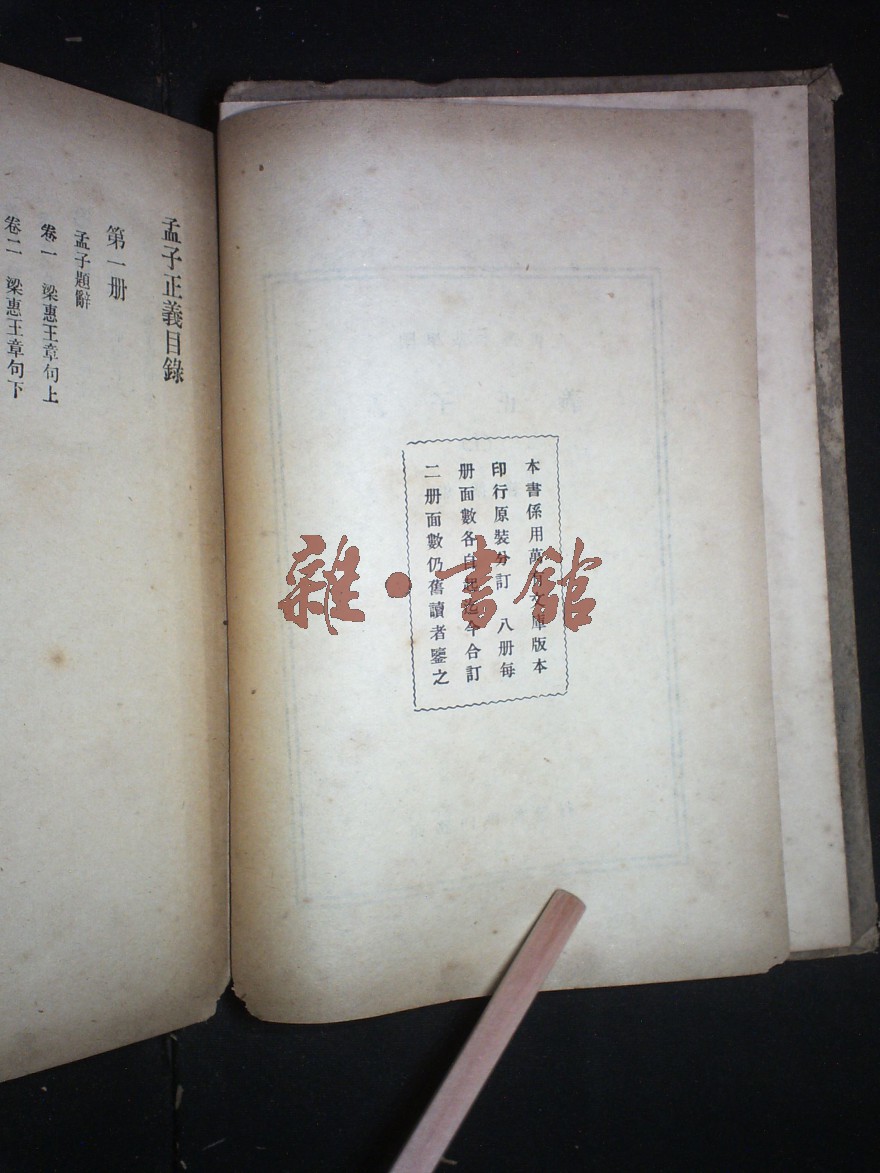 本書係用萬有文庫版本
印行原裝分訂八册每
册面數各自起迄今合訂
二册面數仍舊讀者鑒之
孟子正義目錄
第一册
孟子題辭
卷一 梁惠王章句上
卷二 梁惠王章句下
雜·書館